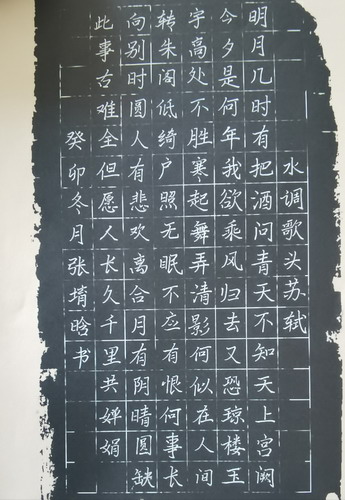 水调歌头苏轼
明月几时有把酒问青天不知天上宫阙
今夕是何年我欲乘风归去又恐琼楼玉
宇高处不胜寒起舞弄清影何似在人间
转朱阁低绮户照无眠不应有恨何事长
向别时圆人有悲欢离合月有阴晴圆缺
此事古难全但愿人长久千里共婵娟
癸卯冬月张堉晗书